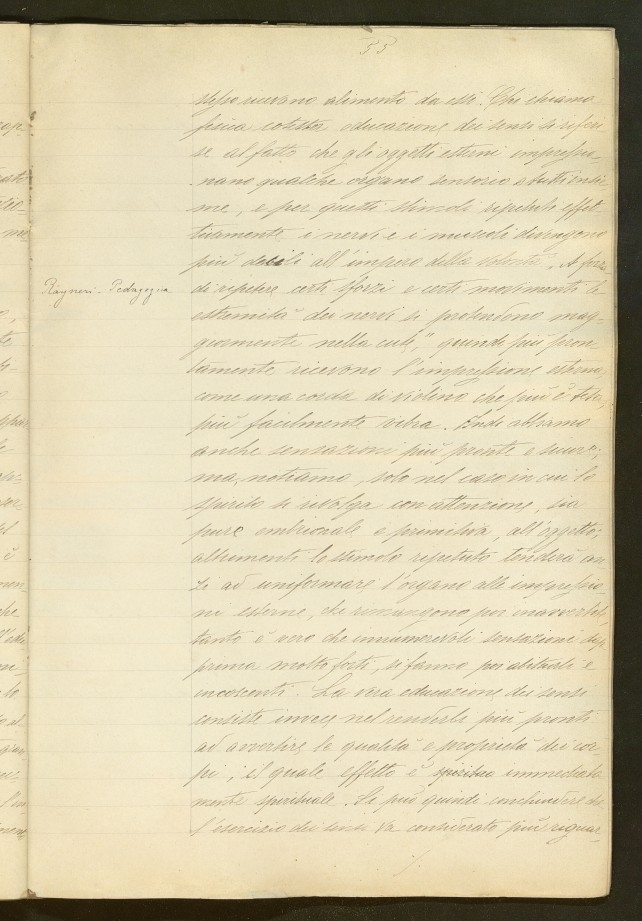 55
stesso ricevono alimento da essi. Che chiamo
fisica cotesta educazione dei sensi si riferi-
se al fatto che gli oggetti esterni impressio-
nano qualche organo sensorio o tutti insie-
me, e per questi stimoli ripetuti effet-
tivamente i nervi e i muscoli divengono
più docili all'impero della volontà. "A forza
Rayneri - Pedagogia
di ripetere certi sforzi e certi movimenti le
estremità dei nervi si protendono mag-
giormente nella cute," quindi più pron-
tamente ricevono l'impressione esterna,
come una corda di violino che più è tesa,
più facilmente vibra. Indi abbiamo
anche sensazioni più pronte e sicure;
ma, notiamo, solo nel caso in cui lo
spirito si rivolga con attenzione, sia
pure embrionale e primitiva, all'oggetto;
altrimenti lo stimolo ripetuto tenderà an-
zi ad uniformare l'organo alle impressio-
ni esterne, che rimangono poi inavvertite,
tanto è vero che innumerevoli sensazioni
prima molto forti, si fanno poi abituali e
incoscenti. La vera educazione dei sensi
consiste invece nel renderli più pronti
ad avvertire le qualità e proprietà dei cor-
pi; il quale effetto è immediata-
mente spirituale. Si può quindi conchiudere che
l'esercizio dei sensi va considerato più riguar-